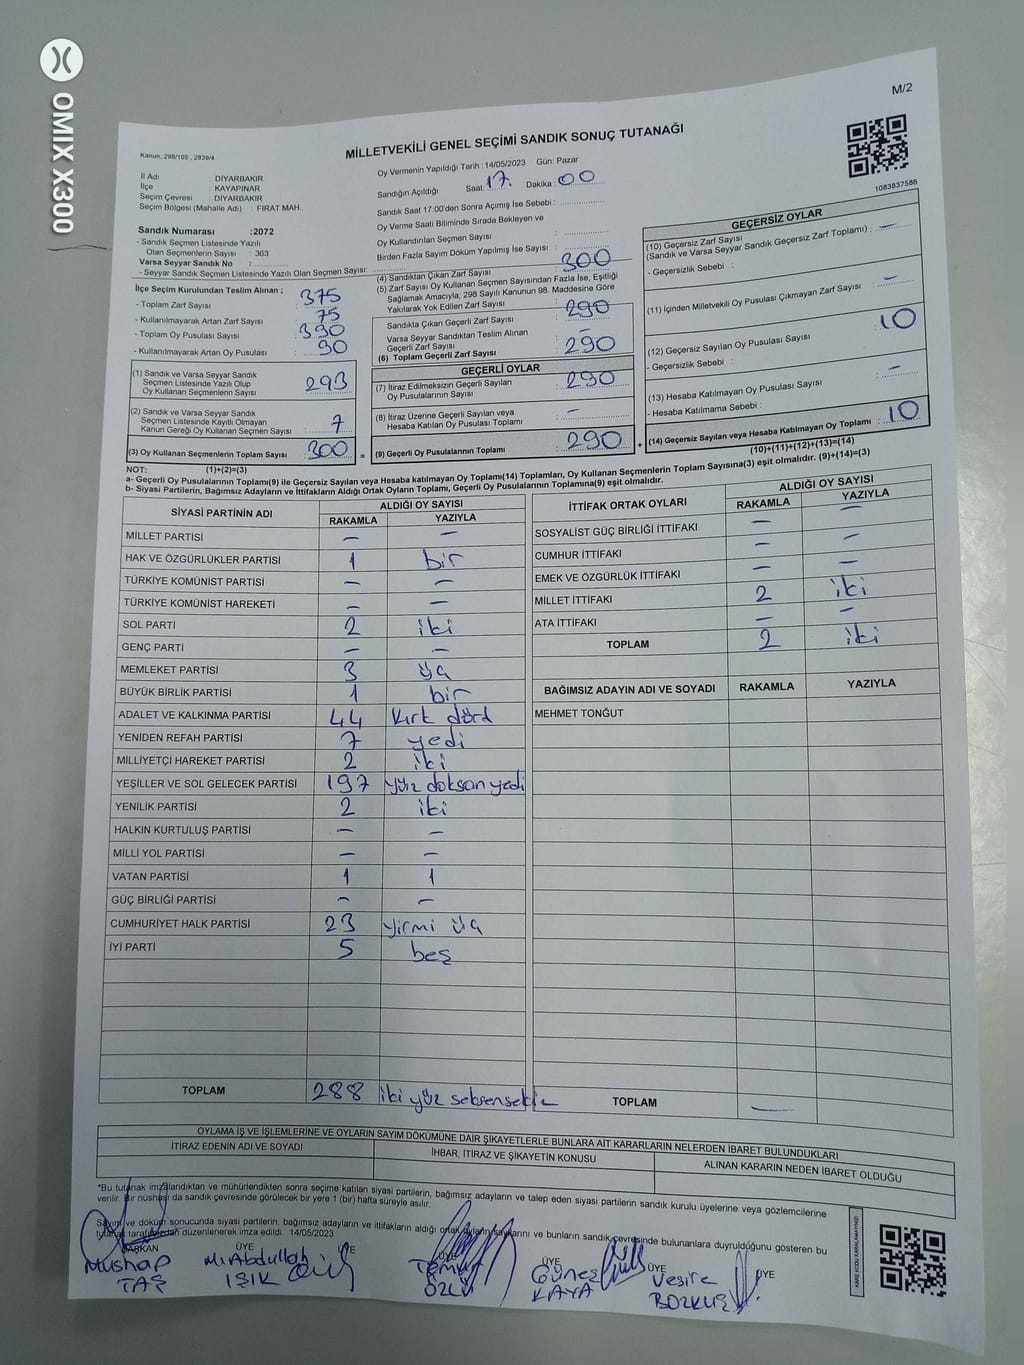 OMIX X300
M/2
MİLLETVEKİLİ GENEL SEÇİMİ SANDIK SONUÇ TUTANAĞI
Kanun; 298/105 , 2839/4
1083837586
İl Adı : DİYARBAKIR
İlçe : KAYAPINAR
Seçim Çevresi : DİYARBAKIR
Seçim Bölgesi (Mahalle Adı) : FIRAT MAH.
Sandık Numarası :2072
- Sandık Seçmen Listesinde Yazılı
Olan Seçmenlerin Sayısı : 363
Varsa Seyyar Sandık No :
- Seyyar Sandık Seçmen Listesinde Yazılı Olan Seçmen Sayısı:
Oy Vermenin Yapıldığı Tarih : 14/05/2023 Gün: Pazar
Sandığın Açıldığı Saat: 17. Dakika : 00
Sandık Saat 17:00'den Sonra Açımış İse Sebebi :
Oy Verme Saati Bitiminde Sırada Bekleyen ve
Oy Kullandırılan Seçmen Sayısı :
Birden Fazla Sayım Döküm Yapılmış İse Sayısı :
İlçe Seçim Kurulundan Teslim Alınan ;
- Toplam Zarf Sayısı : 375
- Kullanılmayarak Artan Zarf Sayısı : 75
- Toplam Oy Pusulası Sayısı : 390
- Kullanılmayarak Artan Oy Pusulası : 90
(1) Sandık ve Varsa Seyyar Sandık
Seçmen Listesinde Yazılı Olup
Oy Kullanan Seçmenlerin Sayısı : 293
(2) Sandık ve Varsa Seyyar Sandık
Seçmen Listesinde Kayıtlı Olmayan
Kanun Gereği Oy Kullanan Seçmen Sayısı : 7
(3) Oy Kullanan Seçmenlerin Toplam Sayısı : 300 =
(4) Sandıktan Çıkan Zarf Sayısı : 300
(5) Zarf Sayısı Oy Kullanan Seçmen Sayısından Fazla İse, Eşitliği
Sağlamak Amacıyla; 298 Sayılı Kanunun 98. Maddesine Göre
Yakılarak Yok Edilen Zarf Sayısı : –
Sandıkta Çıkan Geçerli Zarf Sayısı : 290
Varsa Seyyar Sandıktan Teslim Alınan
Geçerli Zarf Sayısı : –
(6) Toplam Geçerli Zarf Sayısı : 290
GEÇERLİ OYLAR
(7) İtiraz Edilmeksizin Geçerli Sayılan
Oy Pusulalarının Sayısı : 290
(8) İtiraz Üzerine Geçerli Sayılan veya
Hesaba Katılan Oy Pusulası Toplamı : –
(9) Geçerli Oy Pusulalarının Toplamı : 290 +
GEÇERSİZ OYLAR
(10) Geçersiz Zarf Sayısı
(Sandık ve Varsa Seyyar Sandık Geçersiz Zarf Toplamı) : –
- Geçersizlik Sebebi :
(11) İçinden Milletvekili Oy Pusulası Çıkmayan Zarf Sayısı : –
(12) Geçersiz Sayılan Oy Pusulası Sayısı : 10
- Geçersizlik Sebebi :
(13) Hesaba Katılmayan Oy Pusulası Sayısı : –
- Hesaba Katılmama Sebebi :
(14) Geçersiz Sayılan veya Hesaba Katılmayan Oy Toplamı : 10
(10)+(11)+(12)+(13)=(14)
NOT: (1)+(2)=(3)
a- Geçerli Oy Pusulalarının Toplamı(9) ile Geçersiz Sayılan veya Hesaba katılmayan Oy Toplamı(14) Toplamları, Oy Kullanan Seçmenlerin Toplam Sayısına(3) eşit olmalıdır. (9)+(14)=(3)
b- Siyasi Partilerin, Bağımsız Adayların ve İttifakların Aldığı Ortak Oyların Toplamı, Geçerli Oy Pusulalarının Toplamına(9) eşit olmalıdır.
SİYASİ PARTİNİN ADI ALDIĞI OY SAYISI
RAKAMLA YAZIYLA
MİLLET PARTİSİ – –
HAK VE ÖZGÜRLÜKLER PARTİSİ 1 bir
TÜRKİYE KOMÜNİST PARTİSİ – –
TÜRKİYE KOMÜNİST HAREKETİ – –
SOL PARTİ 2 iki
GENÇ PARTİ – –
MEMLEKET PARTİSİ 3 üç
BÜYÜK BİRLİK PARTİSİ 1 bir
ADALET VE KALKINMA PARTİSİ 44 kırk dörd
YENİDEN REFAH PARTİSİ 7 yedi
MİLLİYETÇİ HAREKET PARTİSİ 2 iki
YEŞİLLER VE SOL GELECEK PARTİSİ 197 yüz doksan yedi
YENİLİK PARTİSİ 2 iki
HALKIN KURTULUŞ PARTİSİ – –
MİLLİ YOL PARTİSİ – –
VATAN PARTİSİ 1 1
GÜÇ BİRLİĞİ PARTİSİ – –
CUMHURİYET HALK PARTİSİ 23 yirmi üç
İYİ PARTİ 5 beş
TOPLAM 288 iki yüz seksensekiz
İTTİFAK ORTAK OYLARI ALDIĞI OY SAYISI
RAKAMLA YAZIYLA
SOSYALİST GÜÇ BİRLİĞİ İTTİFAKI – –
CUMHUR İTTİFAKI – –
EMEK VE ÖZGÜRLÜK İTTİFAKI – –
MİLLET İTTİFAKI 2 iki
ATA İTTİFAKI – –
TOPLAM 2 iki
BAĞIMSIZ ADAYIN ADI VE SOYADI RAKAMLA YAZIYLA
MEHMET TONĞUT
TOPLAM –
OYLAMA İŞ VE İŞLEMLERİNE VE OYLARIN SAYIM DÖKÜMÜNE DAİR ŞİKAYETLERLE BUNLARA AİT KARARLARIN NELERDEN İBARET BULUNDUKLARI
İTİRAZ EDENİN ADI VE SOYADI İHBAR, İTİRAZ VE ŞİKAYETİN KONUSU ALINAN KARARIN NEDEN İBARET OLDUĞU
*Bu tutanak imzalandıktan ve mühürlendikten sonra seçime katılan siyasi partilerin, bağımsız adayların ve talep eden siyasi partilerin sandık kurulu üyelerine veya gözlemcilerine
verilir. Bir nüshası da sandık çevresinde görülecek bir yere 1 (bir) hafta süreyle asılır.
Sayım ve döküm sonucunda siyasi partilerin, bağımsız adayların ve ittifakların aldığı ortak oyların sayılarını ve bunların sandık çevresinde bulunanlara duyrulduğunu gösteren bu
tutanak tarafımızdan düzenlenerek imza edildi. 14/05/2023
BAŞKAN ÜYE ÜYE ÜYE ÜYE ÜYE ÜYE
Mushap TAŞ
M. Abdullah IŞIK
ÖZLÜ
Güneş KAYA
Vesire BOZKUŞ
KARE KODU KARALAMAYINIZ!